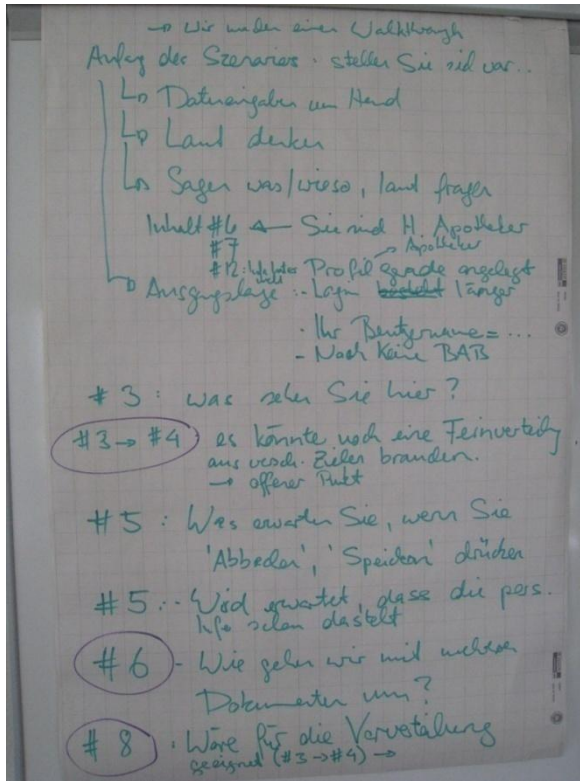 → Wir machen einen Walkthrough
Anfang des Szenarios: stellen Sie sich vor...
↳ Dateneingaben um Hand
↳ Laut denken
↳ Sagen was/wieso, laut fragen
Inhalt #6 ← Sie sind H. Apotheker
#7 → Apotheker
#12: Profil gerade angelegt
→ Ausgangslage :- Login besteht länger
- Ihr Benutzername = ...
- Noch keine BAB
#3: was sehen Sie hier?
#3 → #4 es könnte noch eine Feinverteilg
aus versch. Zielen branden.
→ offener Punkt
#5: Was erwarten Sie, wenn Sie
'Abbrechen', 'Speichern' drücken
#5:- Wird erwartet, dass die pers.
Info schon dasteht
#6 - Wie gehen wir mit mehreren
Dokumenten um?
#8: Wäre für die Vorverteilung
geeignet (#3 → #4) →